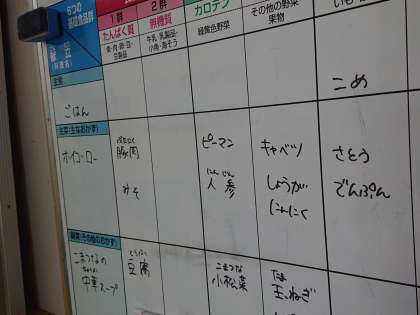 6つの
基礎食品群
1群
たんぱく質
魚・肉・卵・豆・
豆製品
2群
無機質
牛乳・乳製品・
小魚・海そう
カロテン
緑黄色野菜
その他の野菜
果物
献立
(料理名)
主食
ごはん
こめ
主菜(主なおかず)
ホイコーロー
ぶたにく
豚肉
みそ
ピーマン
にんじん
人参
キャベツ
しょうが
にんにく
さとう
でんぷん
副菜(その他のおかず)
こまつなの
ちゅうか
中華スープ
とうふ
豆腐
こまつな
小松菜
たま
玉ねぎ